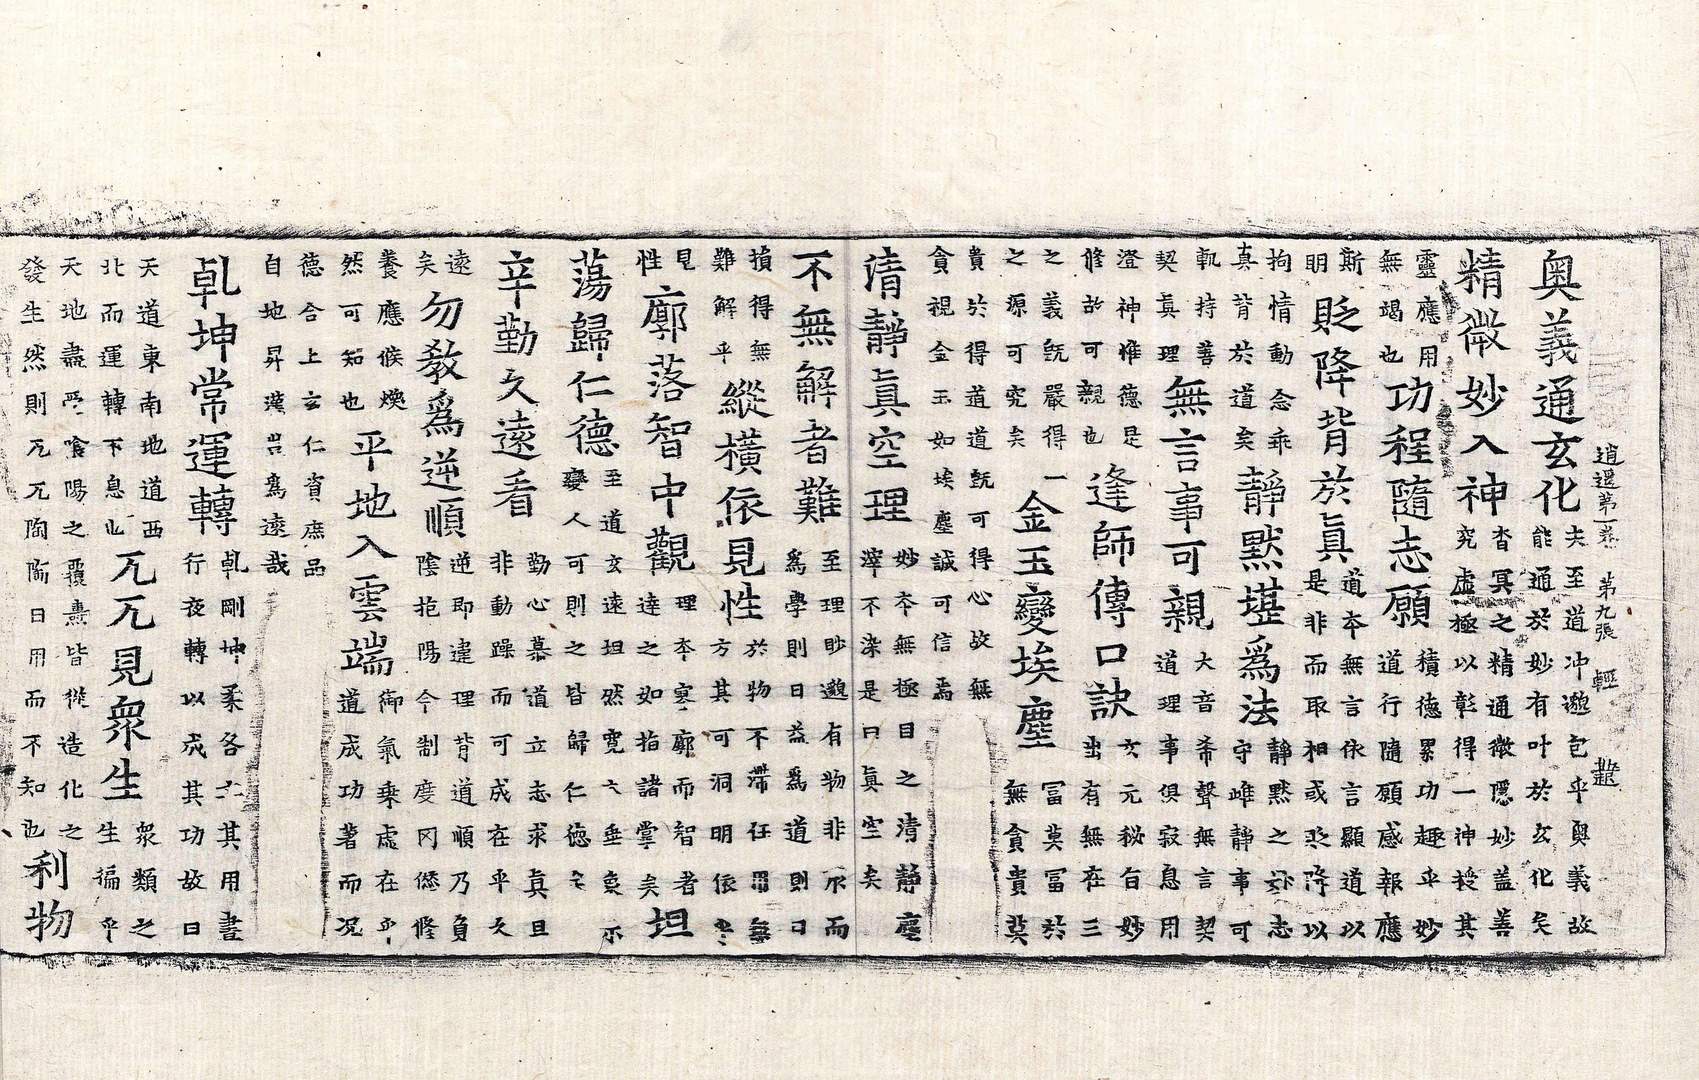 逍遥第一卷　第九張　輕
奧義通玄化　夫至道冲邈包乎奧義故
能通於妙有叶於玄化矣
精微妙入神　杳冥之精通微隱妙蓋善
究虛極以彰得一神授其
靈應用
無竭也　功程隨志願　積德累功趣乎妙
道行隨願感報應
斯
明　貶降背於眞　道本無言依言顯道以
是非而取相或貶降以
拘情動念乖
真背於道矣　靜默堪爲法　靜默之妙志
守雌靜事可
軌持善
契真理　無言事可親　大音希聲無言契
道理事俱寂息用
澄神惟德是
修故可親也　逢師傳口訣　玄元秘旨妙
出有無在三
之義旣嚴得一
之源可究矣　金玉變埃塵　冨莫冨於
無貪貴莫
貴於得道道旣可得心故無
貪視金玉如埃塵誠可信焉
清靜眞空理　妙本無極目之清靜塵
滓不染是曰眞空矣
不無解者難　至理眇邈有物非尒而
爲學則日益爲道則日
損得無
難解乎　縱橫依見性　於物不滯任用無
方其可洞明依
見
性　廓落智中觀　理本寥廓而智者
達之如指諸掌矣　坦
蕩歸仁德　至道玄遠坦然寬大垂示
變人可則之皆歸仁德
辛勤久遠看　勤心慕道立志求真且
非動躁而可成在乎久
遠
矣　勿教爲逆順　逆即違理背道順乃負
陰抱陽今制度冈愆修
養應候煥
然可知也　平地入雲端　御氣乘虛在乎
道成功著而況
德合上玄仁資庶品
自地昇漢豈爲遠哉
乹坤常運轉　乹剛坤柔各其用晝
行夜轉以成其功故曰
天道東南地道西
北而運轉不息也　兀兀見衆生　衆類之
生徧乎
天地盡受陰陽之覆燾皆從造化之
發生然則兀兀陶陶日用而不知也　利物